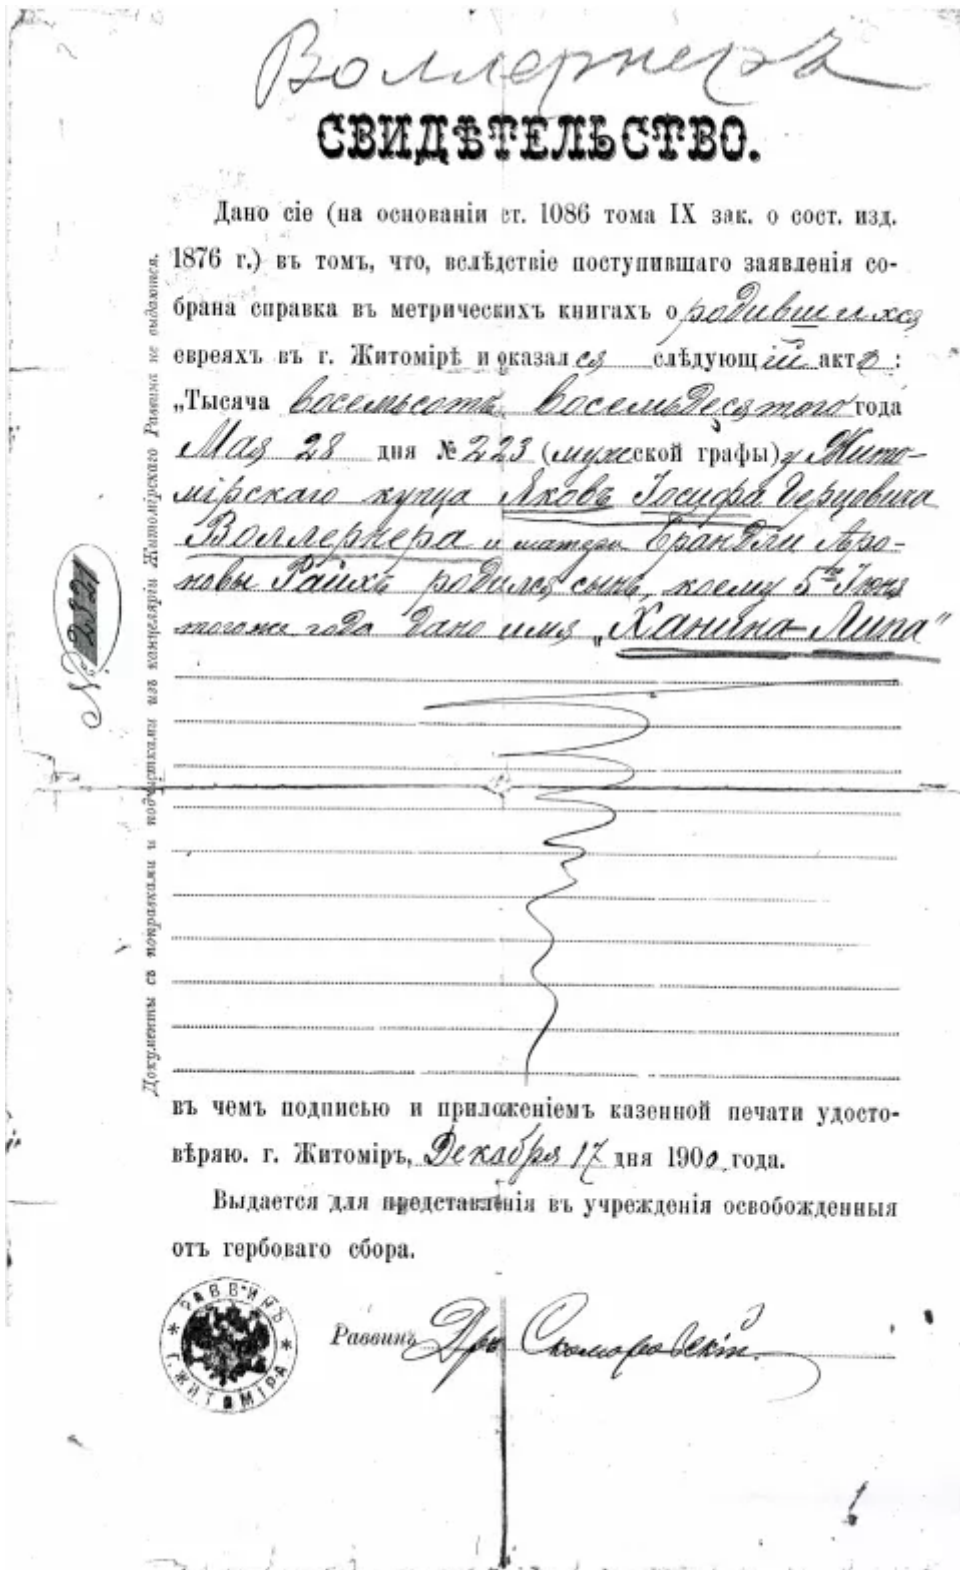 Воллернеръ
СВИДѢТЕЛЬСТВО.
Дано сіе (на основаніи ст. 1086 тома IX зак. о сост. изд.
1876 г.) въ томъ, что, вслѣдствіе поступившаго заявленія со-
брана справка въ метрическихъ книгахъ о родившихся
евреяхъ въ г. Житомірѣ и оказался слѣдующій актъ:
„Тысяча восемьсотъ восемьдесятого года
Мая 28 дня № 223 (мужской графы) у Жито-
мірскаго купца Яковъ Іосифа Герцовича
Воллернера и матери Брандли Аро-
новы Райхъ родился сынъ, коему 5го Іюня
того же года дано имя „Ханина-Липа"
въ чемъ подписью и приложеніемъ казенной печати удосто-
вѣряю. г. Житоміръ, Декабря 17 дня 1900 года.
Выдается для представленія въ учрежденія освобожденныя
отъ гербоваго сбора.
Раввинъ Др Скомаровскій
РАВВИНЪ * Г. ЖИТОМІРА *
№ 2821
Документы съ поправками и подчистками изъ канцеляріи Житомірскаго Раввина не выдаются.